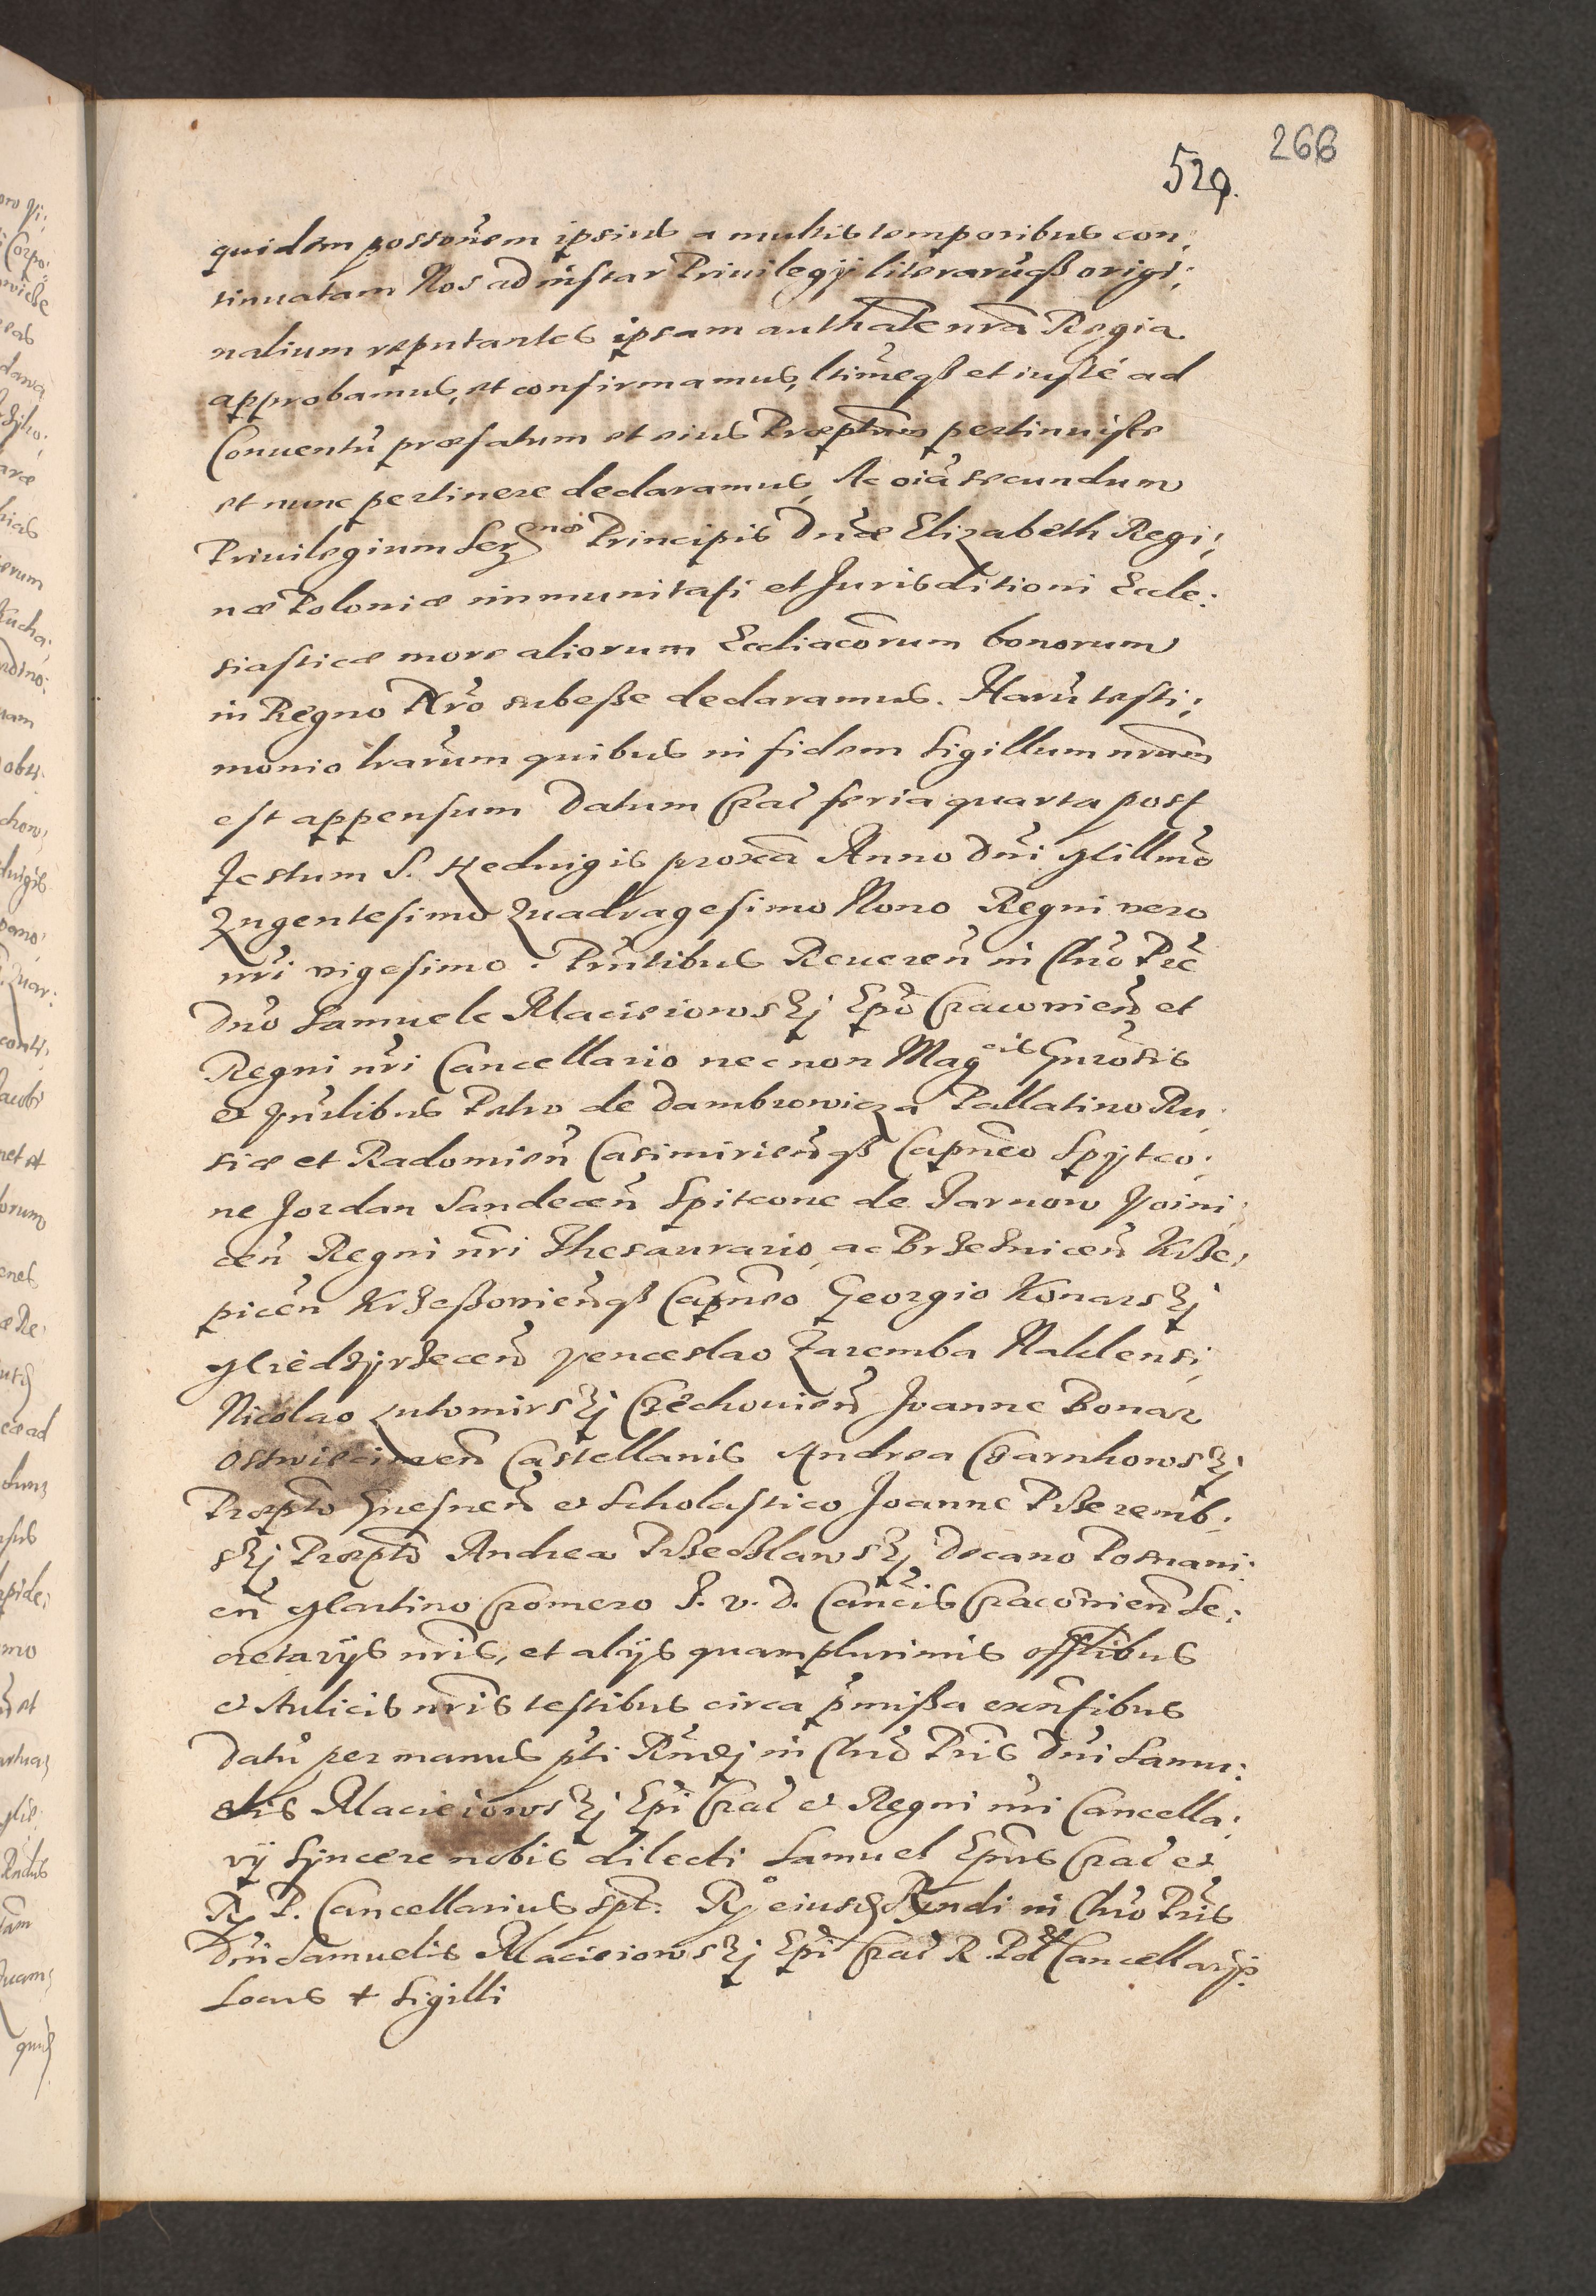 266
529.
quidem possonem ipsius a multis temporibus con:
tinuatam Nos ad instar Priuilegij literarumqß origi:
nalium reputantes ipsam authate nra Regia
approbamus, et confirmamus, ltimeqß et iusté ad
Conuentū præfatum et eius Præptum pertinuiße
et nunc pertinere declaramus, Ac oia secundum
Priuilegium Ser<sup>mæ</sup> Principis Dnæ Elizabeth Regi:
næ Poloniæ immunitati et Jurisditioni Eccle:
siasticæ more aliorum Eccliacorum bonorum
in Regno Nro subeße declaramus. Harū testi:
monio lrarum quibus in fidem Sigillum nrum
est appensum Datum Crac feria quarta post
Festum S. Heduigis proxa Anno Dni Millmo
Qngentesimo Quadragesimo Nono Regni vero
nri vigesimo. Pntibus Reueren in Chro Pre
Dno Samuele Macieiowskj Epo Cracouien et
Regni nri Cancellario nec non Mag<sup>cis</sup> Gnrosis
et Vnrlibus Petro de Dambrowicza Pallatino Ru:
siæ et Radomien Casimirienqß Capneo Spytco:
ne Jordan Sandecen Spitcone de Tarnow Voini:
cen Regni nri Thesaurario, ac Brzeznicen Krze:
picen Krzeßouienqß Capneo Georgio Konarskj
Miedzyrzecen Venceslao Zaremba Naklensi,
Nicolao Lutomirskj Czechouien Joanne Bonar
Oswiecimen Castellanis Andrea Czarnkowskj
Præpto Gnesnen et Scholastico Joanne Przeremb:
skj Præpto Andrea Przeclawskj Decano Posnani:
en Martino Cromero J. v. D. Cancis Cracouien Se:
cretarijs nris, et alijs quam plurimis offlibus
et Aulicis nris testibus circa pmißa exntibus
Datū per manus pti Rndj in Chro Pris Dni Samu:
elis Macieiowskj Epi Crac et Regni nri Cancella:
rij Syncere nobis dilecti Samuel Epus Crac et
R. P. Cancellarius spt. Ro eiusd Rndi in Chro Pris
Dni Samuelis Macieiowskj Epi Crac R. Pol Cancellarij.
Locus + Sigilli